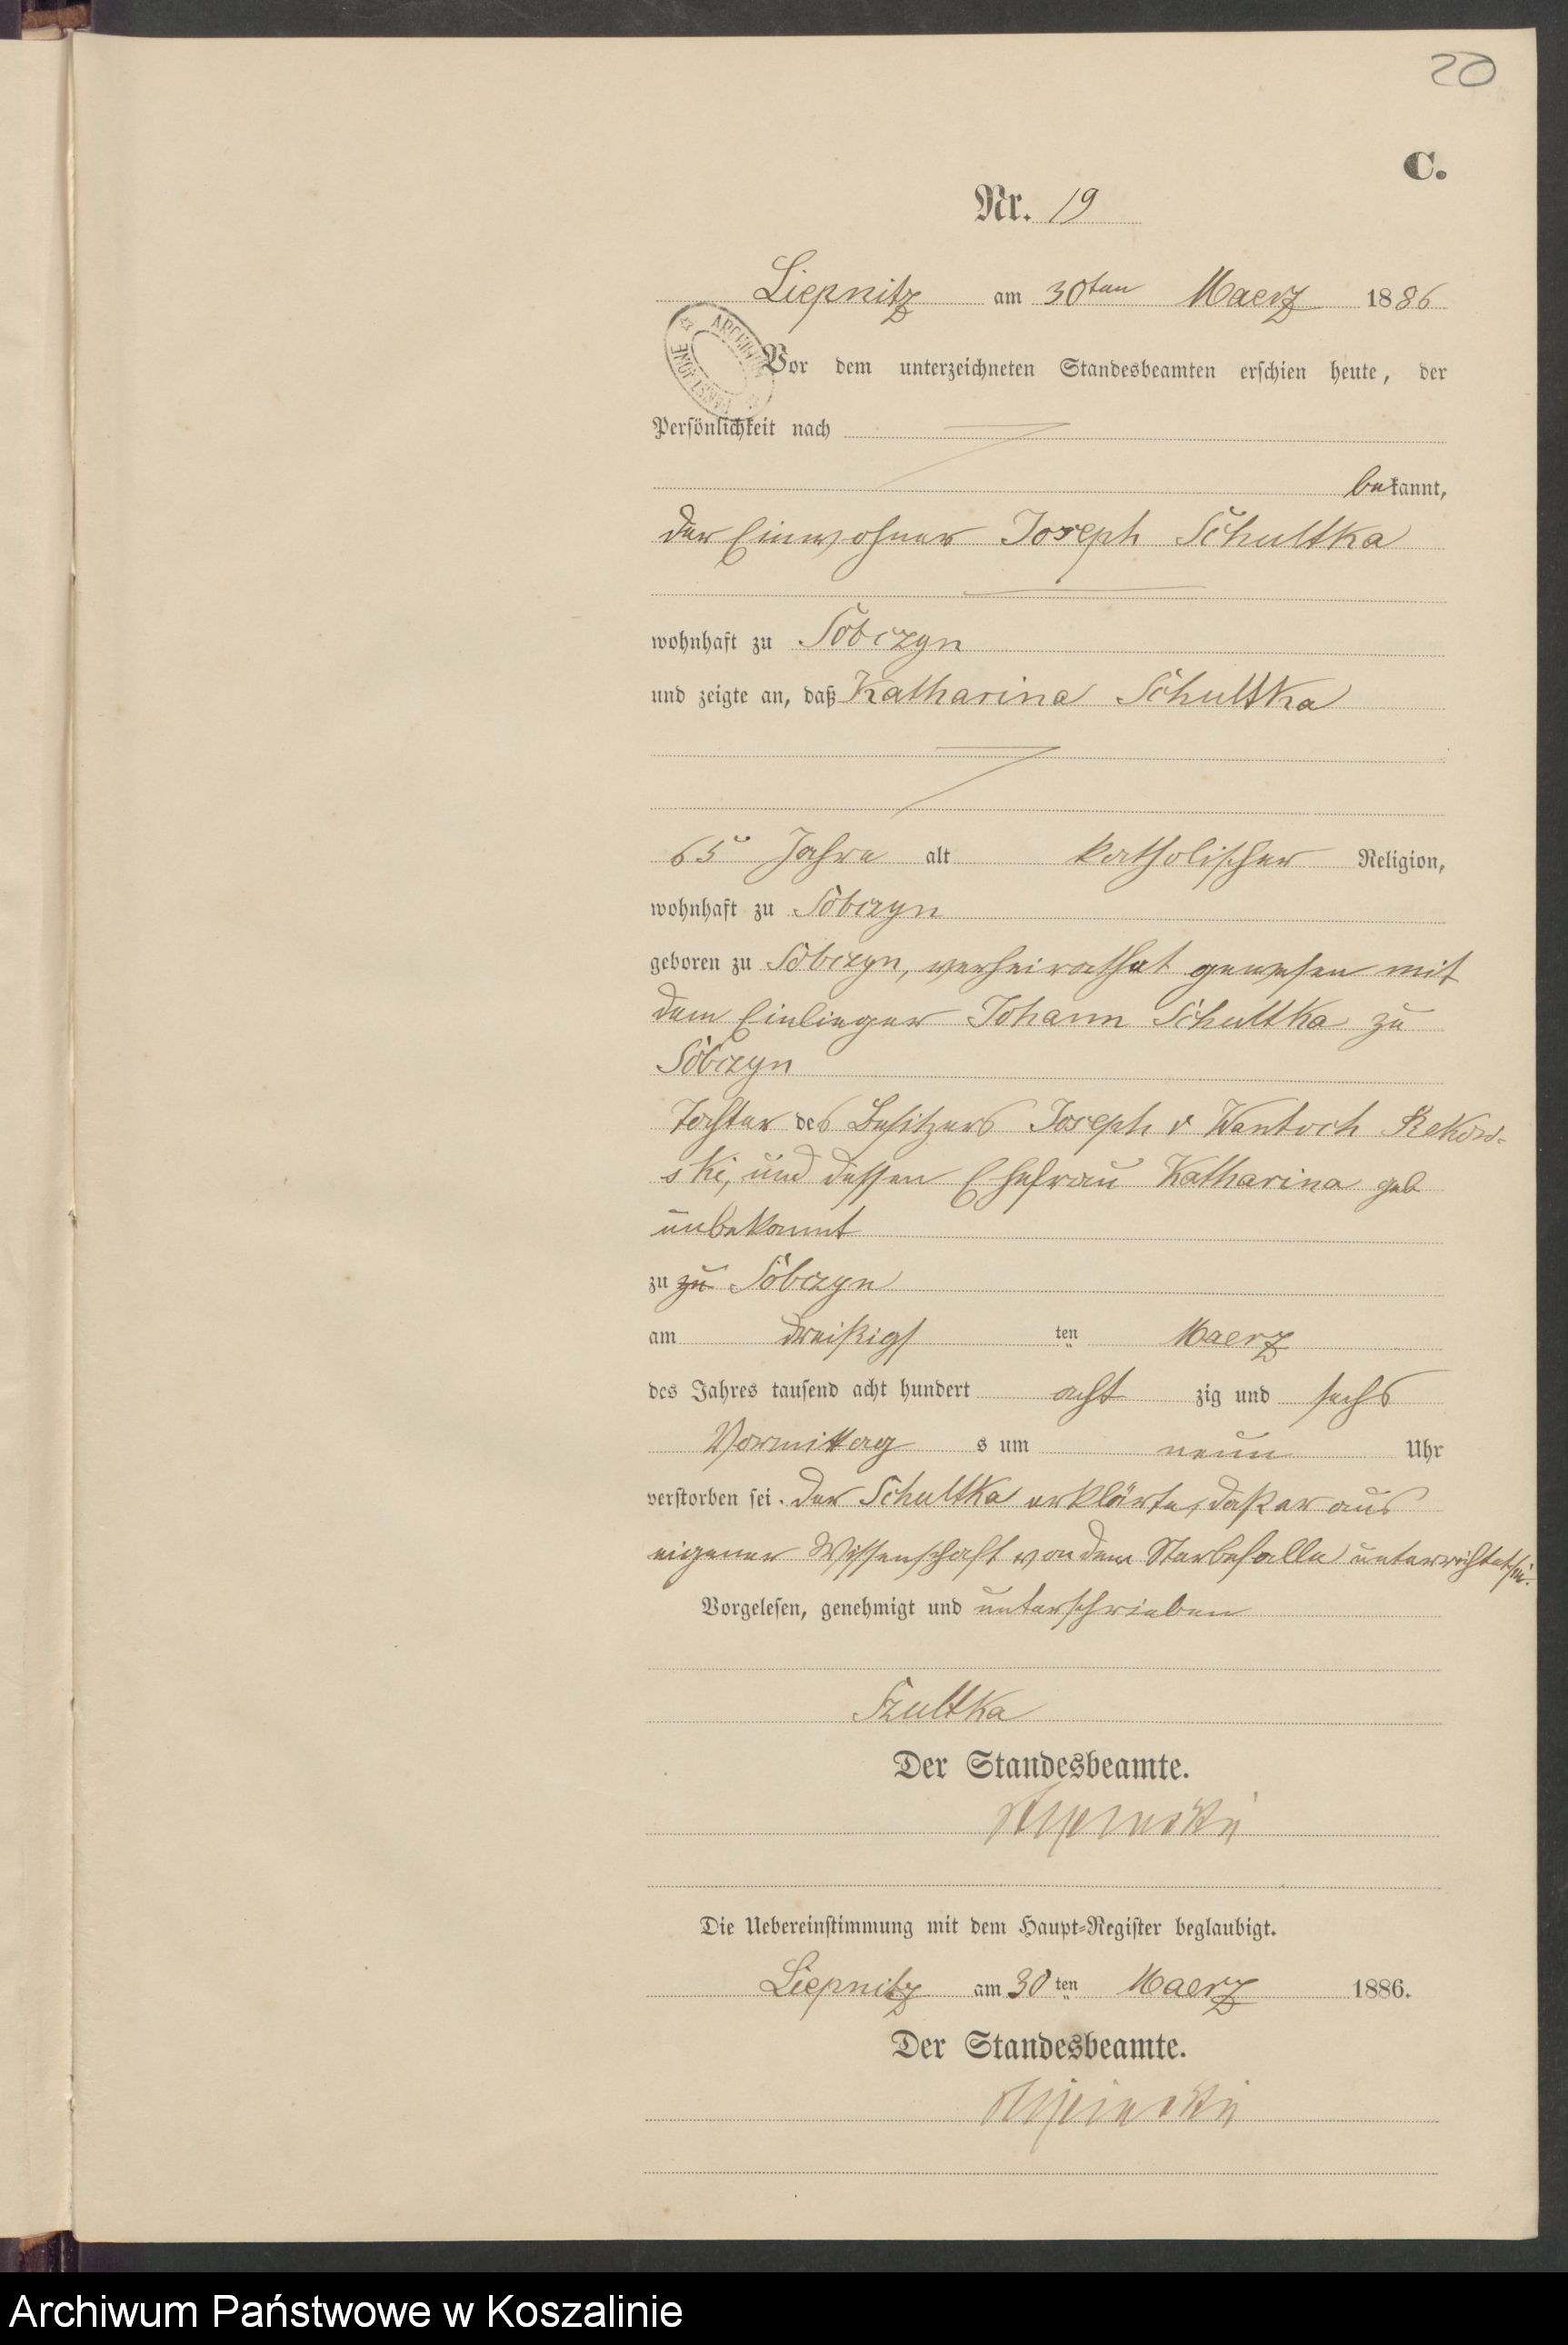 20
C.
Nr. 19
Liepnitz am 30ten Maerz 1886
Vor dem unterzeichneten Standesbeamten erschien heute, der
Persönlichkeit nach
bekannt,
der Einwohner Joseph Schultka
wohnhaft zu Sobczyn
und zeigte an, daß Katharina Schultka
65 Jahre alt katholischer Religion,
wohnhaft zu Sobczyn
geboren zu Sobczyn, verheirathet gewesen mit
dem Einlieger Johann Schultka zu
Sobczyn
Tochter des Besitzers Joseph v Wantoch Rekow-
ski, und dessen Ehefrau Katharina geb
unbekannt
zu zu Sobczyn
am dreißigs ten Maerz
des Jahres tausend acht hundert acht zig und sechs
Vormittag s um neun Uhr
verstorben sei. der Schultka erklärte, daß er aus
eigener Wissenschaft von dem Sterbefalle unterrichtet sei.
Vorgelesen, genehmigt und unterschrieben
Szultka
Der Standesbeamte.
Die Uebereinstimmung mit dem Haupt-Register beglaubigt.
Liepnitz am 30 ten Maerz 1886.
Der Standesbeamte.
Archiwum Państwowe w Koszalinie